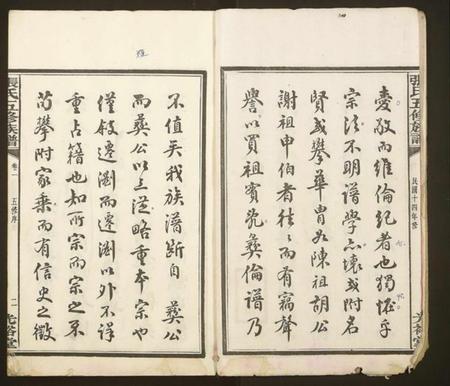 張氏五修族譜
民國十四年修
光裕堂
愛敬而維倫紀者也獨怪乎
宗法不明譜學亦壞或附名
賢或攀華胄如陳祖胡公
謝祖申伯者往〻而有竊聲
譽以買祖賓咒彝倫譜乃
不值矣我族譜斷自彝公
而彝公以上從略重本宗也
僅敘遷瀏而遷瀏以外不詳
重占籍也如所宗而宗之不
苟攀附家乘而有信史之徵
張氏五修族譜
卷一
五修序
二
光裕堂